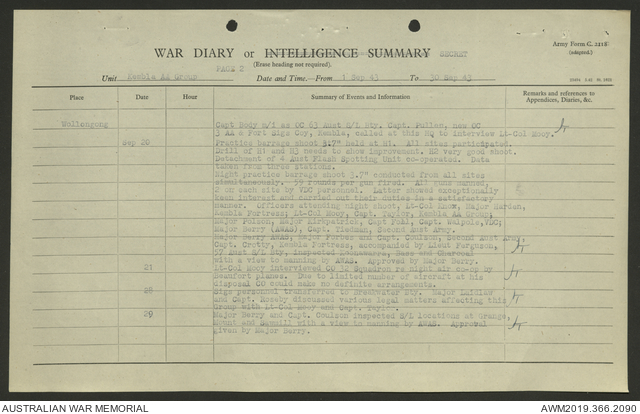 Army Form C. 2118
(adapted.)
WAR DIARY or INTELLIGENCE SUMMARY SECRET
(Erase heading not required).
PAGE 2
Unit Kembla AA Group Date and Time.—From 1 Sep 43 To 30 Sep 43
Place Date Hour Summary of Events and Information Remarks and references to Appendices, Diaries, &c.
Wollongong Capt Body m/i as OC 63 Aust S/L Bty. Capt. Pullen, new OC
3 AA & Fort Sigs Coy, Kembla, called at this HQ to interview Lt-Col Mooy.
Sep 20 Practice barrage shoot 3.7" held at H1. All sites participated.
Drill of H1 and H3 needs to show improvement. H2 very good shoot.
Detachment of 4 Aust Flash Spotting Unit co-operated. Data
taken from three stations.
Night practice barrage shoot 3.7" conducted from all sites
simultaneously. 59 rounds per gun fired. All guns manned,
2 on each site by VDC personnel. Latter showed exceptionally
keen interest and carried out their duties in a satisfactory
manner. Officers attending night shoot, Lt-Col Mooy, Major Harden,
Kembla Fortress; Lt-Col Mooy, Capt. Taylor, Kembla AA Group;
Major Folson, Major Kirkpatrick, Capt Pahl, Capt. Walpole, VDC;
Major Berry (AWAS), Capt. Tiedman, Second Aust Army.
Major Berry AWAS, Major Forbes and Capt. Coulson, Second Aust Army,
Capt. Crotty, Kembla Fortress, accompanied by Lieut Ferguson,
57 Aust S/L Bty, inspected Koonawarra, Bass and Charcoal
with a view to manning by AWAS. Approved by Major Berry.
21 Lt-Col Mooy interviewed CO 32 Squadron re night air co-op by
Beaufort planes. Due to limited number of aircraft at his
disposal CO could make no definite arrangements.
28 Sigs personnel transferred to Breakwater Bty. Major Laidlaw
and Capt. Roseby discussed various legal matters affecting this
Group with Lt-Col Mooy and Capt. Taylor.
29 Major Berry and Capt. Coulson inspected S/L locations at Grange,
Mount and Sawmill with a view to manning by AWAS. Approval
given by Major Berry.
AUSTRALIAN WAR MEMORIAL
AWM2019.366.2090